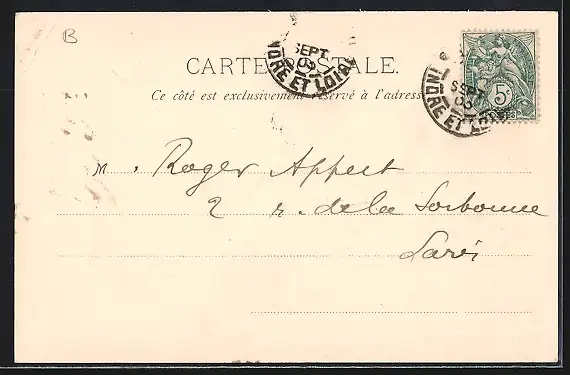 B
CARTE POSTALE.
Ce côté est exclusivement réservé à l'adresse
SEPT
03
INDRE ET LOIRE
SEPT
03
INDRE ET LOIRE
5c
M. Roger Appert
2 r. de la Sorbonne
Paris